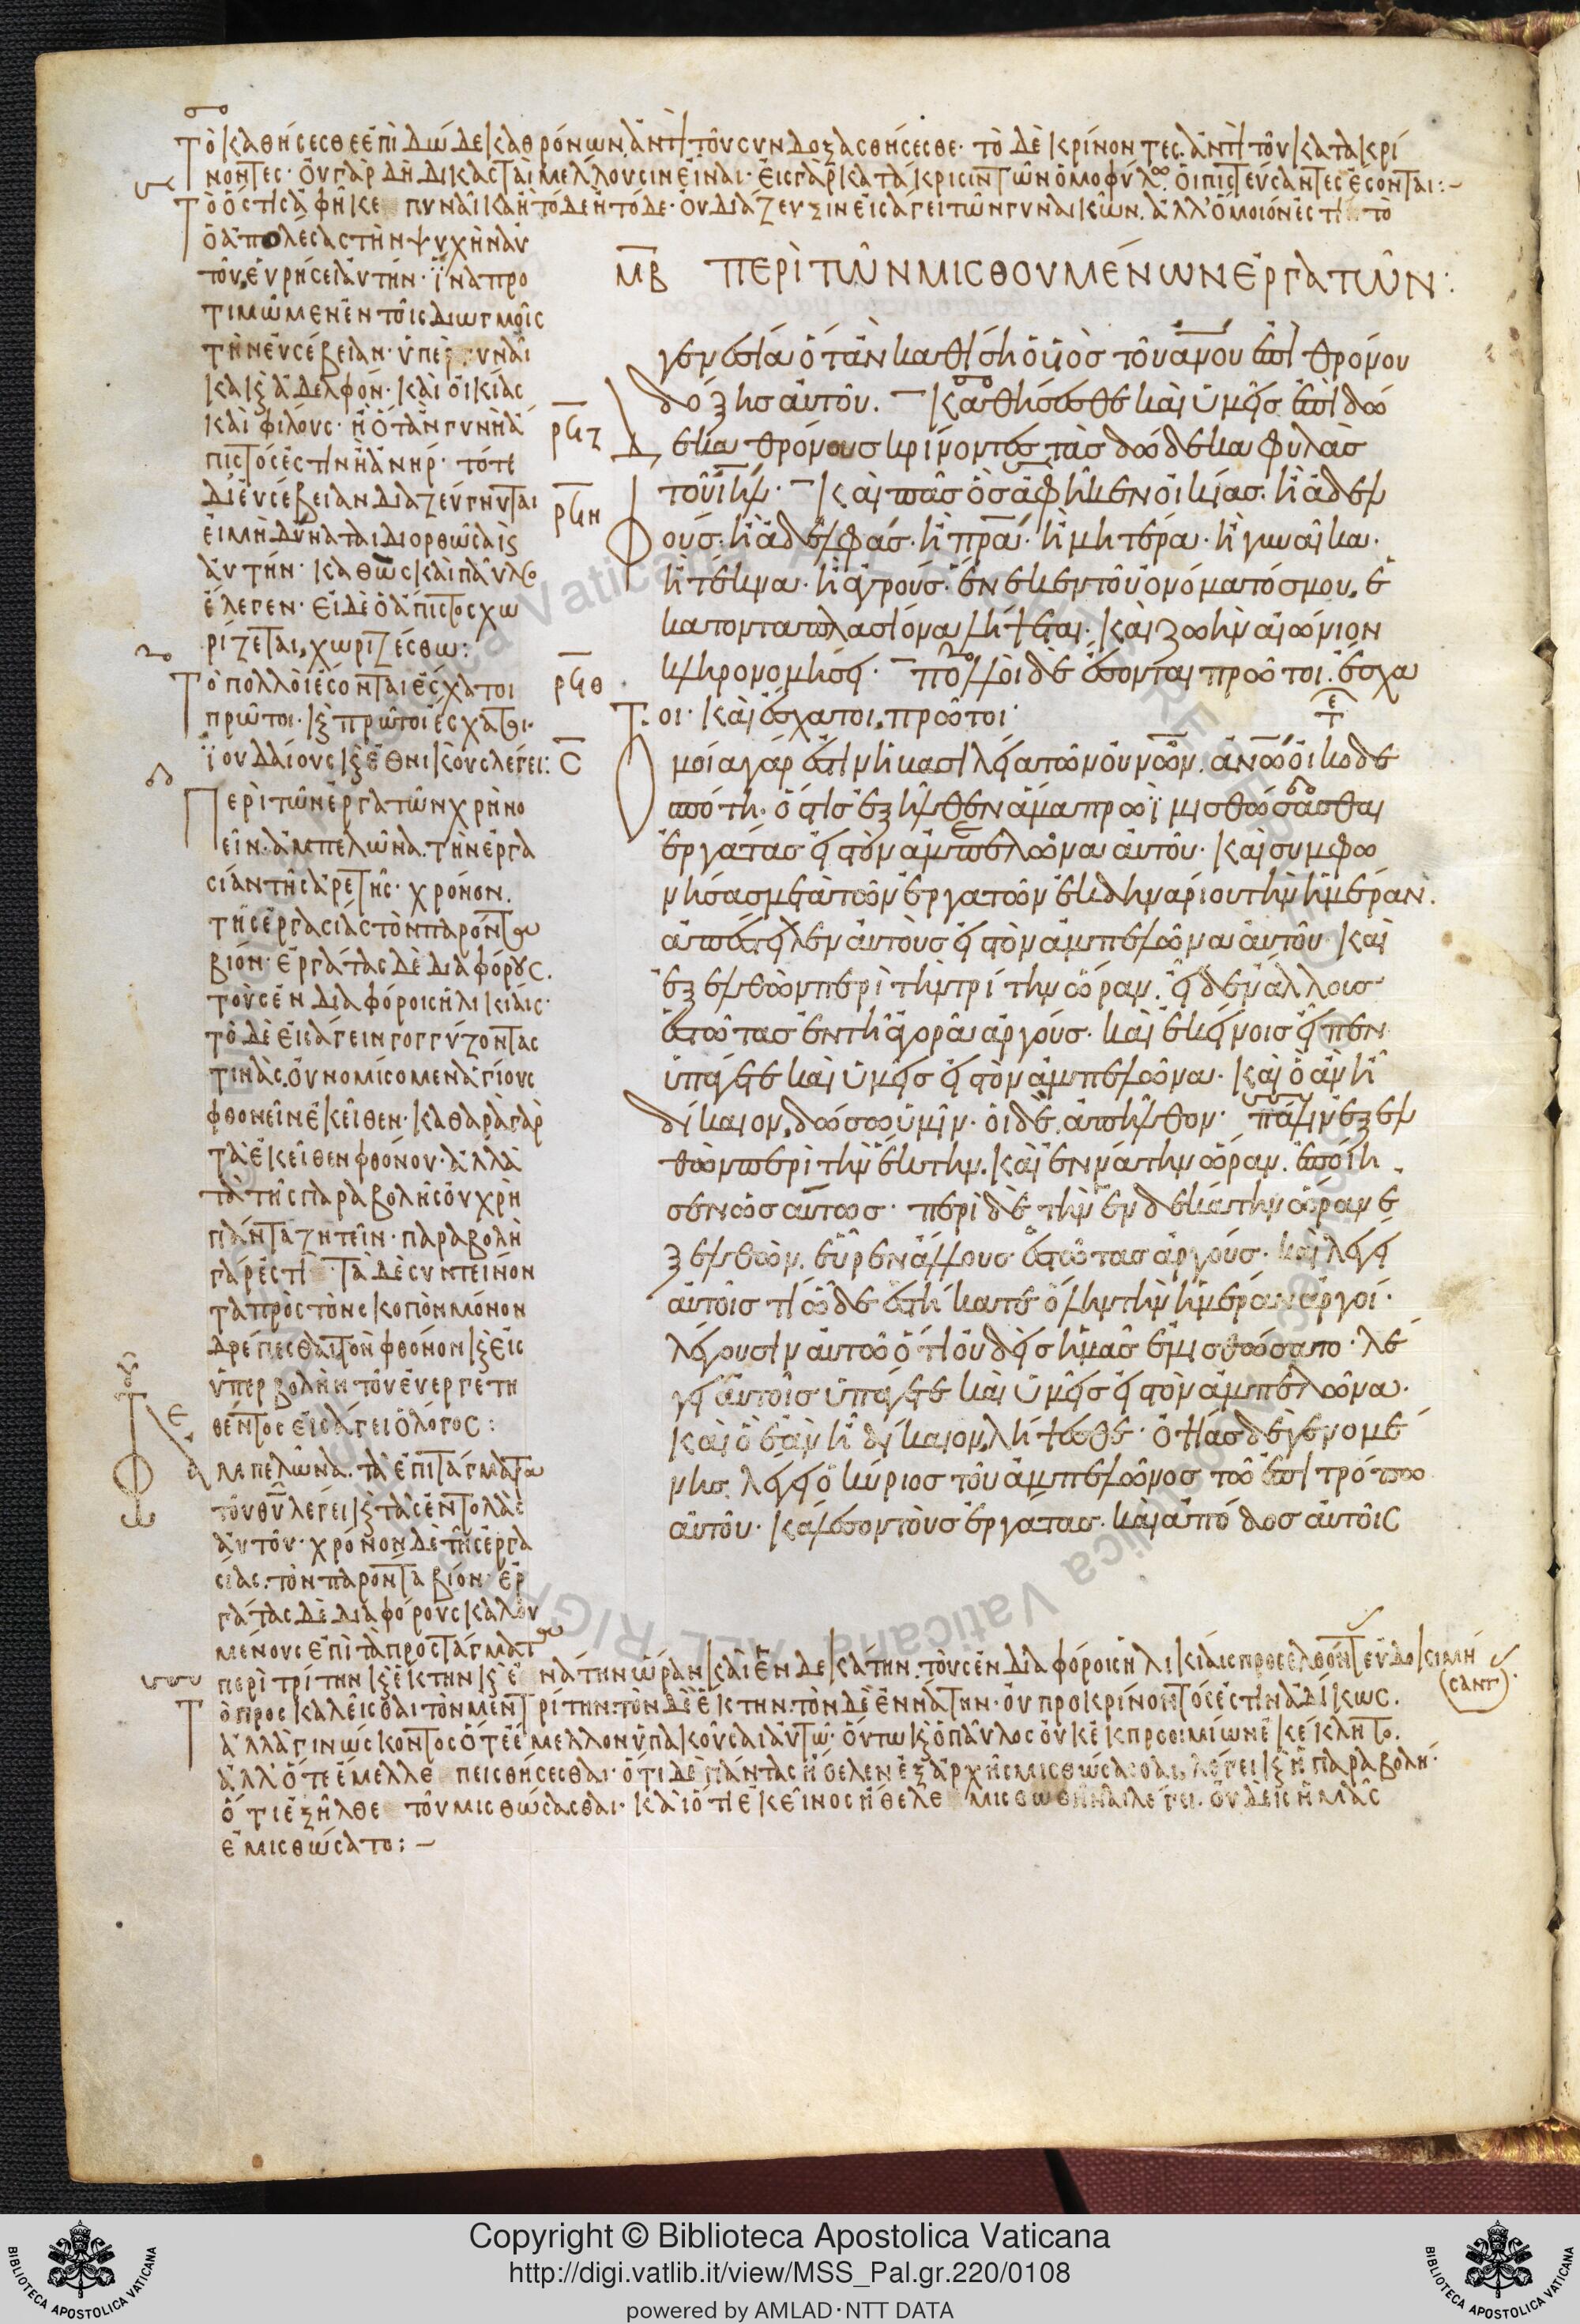 Τὸ καθήσεσθε ἐπὶ δώδεκα θρόνων, ἀντὶ τοῦ συνδοξασθήσεσθε· τὸ δὲ κρίνοντες. ἀντὶ τοῦ κατακρί
νοντες· οὐ γὰρ δὴ δικασταὶ μέλλουσιν εἶναι· εἰς γὰρ κατάκρισιν τῶν ὁμοφύλων οἱ πιστεύσαντες ἔσονται:-
Τὸ ὅστις ἀφῆκε γυναῖκα ἢ τόδε ἢ τόδε· οὐ διάζευξιν εἰσάγει τῶν γυναικῶν. ἀλλ' ὅμοιόν ἐστι τὸ
ὁ ἀπολέσας τὴν ψυχὴν αὐ
τοῦ, εὑρήσει αὐτήν· ἵνα προ
τιμῶμεν ἐν τοῖς διωγμοῖς
τὴν εὐσέβειαν· ὑπὲρ γυναῖ
κα κ ἀδελφόν· καὶ οἰκίας
καὶ φίλους· ἢ ὅταν γυνὴ ἄ
πιστός ἐστιν ἢ ἀνήρ· τότε
δι' εὐσέβειαν διαζεύγνυται
εἰ μὴ δύναται διορθῶσαι
αὐτήν· καθὼς καὶ παῦλος
ἔλεγεν· εἰ δὲ ὁ ἄπιστος χω
ρίζεται, χωριζέσθω:
Τὸ πολλοὶ ἔσονται ἔσχατοι
πρῶτοι· κ πρῶτοι ἔσχατοι·
ἰουδαίους κ ἐθνικοὺς λέγει:
Περὶ τῶν ἐργατῶν χρὴ νο
εῖν· ἀμπελῶνα. τὴν ἐργα
σίαν τῆς ἀρετῆς· χρόνον.
τῆς ἐργασίας τὸν παρόντα
βίον· ἐργάτας δὲ διαφόρους.
τοὺς ἐν διαφόροις ἡλικίαις·
τὸ δὲ εἰσάγειν γογγύζοντας
τινὰς. οὐ νομίσομεν ἁγίους
φθονεῖν ἐκεῖθεν· καθαρὰ γὰρ
τὰ ἐκεῖθεν φθόνου· ἀλλὰ
τὰ τῆς παραβολῆς οὐ χρὴ
πάντα ζητεῖν· παραβολὴ
γάρ ἐστι· τὰ δὲ συντείνον
τα πρὸς τὸν σκοπὸν μόνον
δρέπεσθαι τὸν φθόνον κ εἰς
ὑπερβολὴν τοῦ εὐεργετη
θέντος εἰσάγει ὁ λόγος:
ἀμπελῶνα. τὰ ἐπιτάγματα
τοῦ θυ λέγει κ τὰς ἐντολὰς
αὐτοῦ· χρόνον δὲ τῆς ἐργα
σίας. τὸν παρόντα βίον· ἐρ
γάτας δὲ διαφόρους καλου
μένους ἐπὶ τὰ προστάγματα
περὶ τρίτην κ ἕκτην κ ἐνάτην ὥραν καὶ ἑνδεκάτην. τοὺς ἐν διαφόροις ἡλικίαις προσελθόντας εὐδοκιμή
σαντ
Τὸ προσκαλεῖσθαι τὸν μὲν τρίτην. τὸν δὲ ἕκτην. τὸν δὲ ἐννάτην· οὐ προκρίνοντός ἐστιν ἀδίκως.
ἀλλὰ γινώσκοντος ὅτε ἔμελλον ὑπακοῦσαι αὐτῷ· οὕτω κ ὁ παῦλος οὐκ ἐκ προοιμίων ἐκέκλητο.
ἀλλ' ὅτε ἔμελλε πεισθήσεσθαι· ὅτι δὲ πάντας ἤθελεν ἐξαρχῆς μισθώσασθαι, λέγει κ ἡ παραβολή·
ὅτι ἐξῆλθε τοῦ μισθώσασθαι· καὶ ὅτι ἐκεῖνος ἤθελε μισθωθῆναι λέγει. οὐδεὶς ἡμᾶς
ἐμισθώσατο:-
ΜΒ ΠΕΡῚ ΤΩ͂Ν ΜΙΣΘΟΥΜΈΝΩΝ ἘΡΓΑΤΩ͂Ν:
γενεσία ὅταν καθίσῃ ὁ υἱὸς τοῦ ανου ἐπὶ θρόνου
δόξης αὐτοῦ. καθήσεσθε καὶ ὑμεῖς ἐπὶ δώ
ρϟζ
δεκα θρόνους κρίνοντες τὰς δώδεκα φυλὰς
τοῦ ιηλ. καὶ πᾶς ὃς ἀφῆκεν οἰκίας. ἢ ἀδελ
ρϟη
φούς. ἢ ἀδελφάς. ἢ πρα. ἢ μητέρα. ἢ γυναῖκα.
ἢ τέκνα. ἢ ἀγρούς. ἕνεκεν τοῦ ὀνόματός μου, ἑ
κατονταπλασίονα λήψεται. καὶ ζωὴν αἰώνιον
ρϟθ
κληρονομήσει. πολλοὶ δὲ ἔσονται πρῶτοι. ἔσχα
τοι. καὶ ἔσχατοι, πρῶτοι·
Σ
Ὁμοία γάρ ἐστιν ἡ βασιλεία τῶν οὐνων. ἀνω οἰκοδε
σπότῃ. ὅστις ἐξῆλθεν ἅμα πρωῒ μισθώσασθαι
ἐργάτας εἰς τὸν ἀμπελῶνα αὐτοῦ· καὶ συμφω
νήσας μετὰ τῶν ἐργατῶν ἐκ δηναρίου τὴν ἡμέραν.
ἀπέστειλεν αὐτοὺς εἰς τὸν ἀμπελῶνα αὐτοῦ· καὶ
ἐξελθὼν περὶ τὴν τρίτην ὥραν. εἶδεν ἄλλους
ἑστῶτας ἐν τῇ ἀγορᾷ ἀργούς· καὶ ἐκείνοις εἶπεν
ὑπάγετε καὶ ὑμεῖς εἰς τὸν ἀμπελῶνα. καὶ ὃ ἂν ᾖ
δίκαιον, δώσω ὑμῖν. οἱ δὲ ἀπῆλθον· πάλιν ἐξελ
θὼν περὶ τὴν ἕκτην. καὶ ἐννάτην ὥραν. ἐποίη
σεν ὡσαύτως. περὶ δὲ τὴν ἑνδεκάτην ὥραν ἐ
ξελθὼν. εὗρεν ἄλλους ἑστῶτας ἀργούς. καὶ λέγει
αὐτοῖς τί ὧδε ἑστήκατε ὅλην τὴν ἡμέραν ἀργοί.
λέγουσιν αὐτῷ ὅτι οὐδεὶς ἡμᾶς ἐμισθώσατο. λέ
γει αὐτοῖς ὑπάγετε καὶ ὑμεῖς εἰς τὸν ἀμπελῶνα.
καὶ ὃ ἐὰν ᾖ δίκαιον, λήψεσθε· ὀψίας δὲ γενομέ
νης λέγει ὁ κύριος τοῦ ἀμπελῶνος τῷ ἐπιτρόπῳ
αὐτοῦ. κάλεσον τοὺς ἐργάτας. καὶ ἀπόδος αὐτοῖς
Copyright © Biblioteca Apostolica Vaticana
http://digi.vatlib.it/view/MSS_Pal.gr.220/0108
powered by AMLAD·NTT DATA
BIBLIOTECA APOSTOLICA VATICANA
BIBLIOTECA APOSTOLICA VATICANA